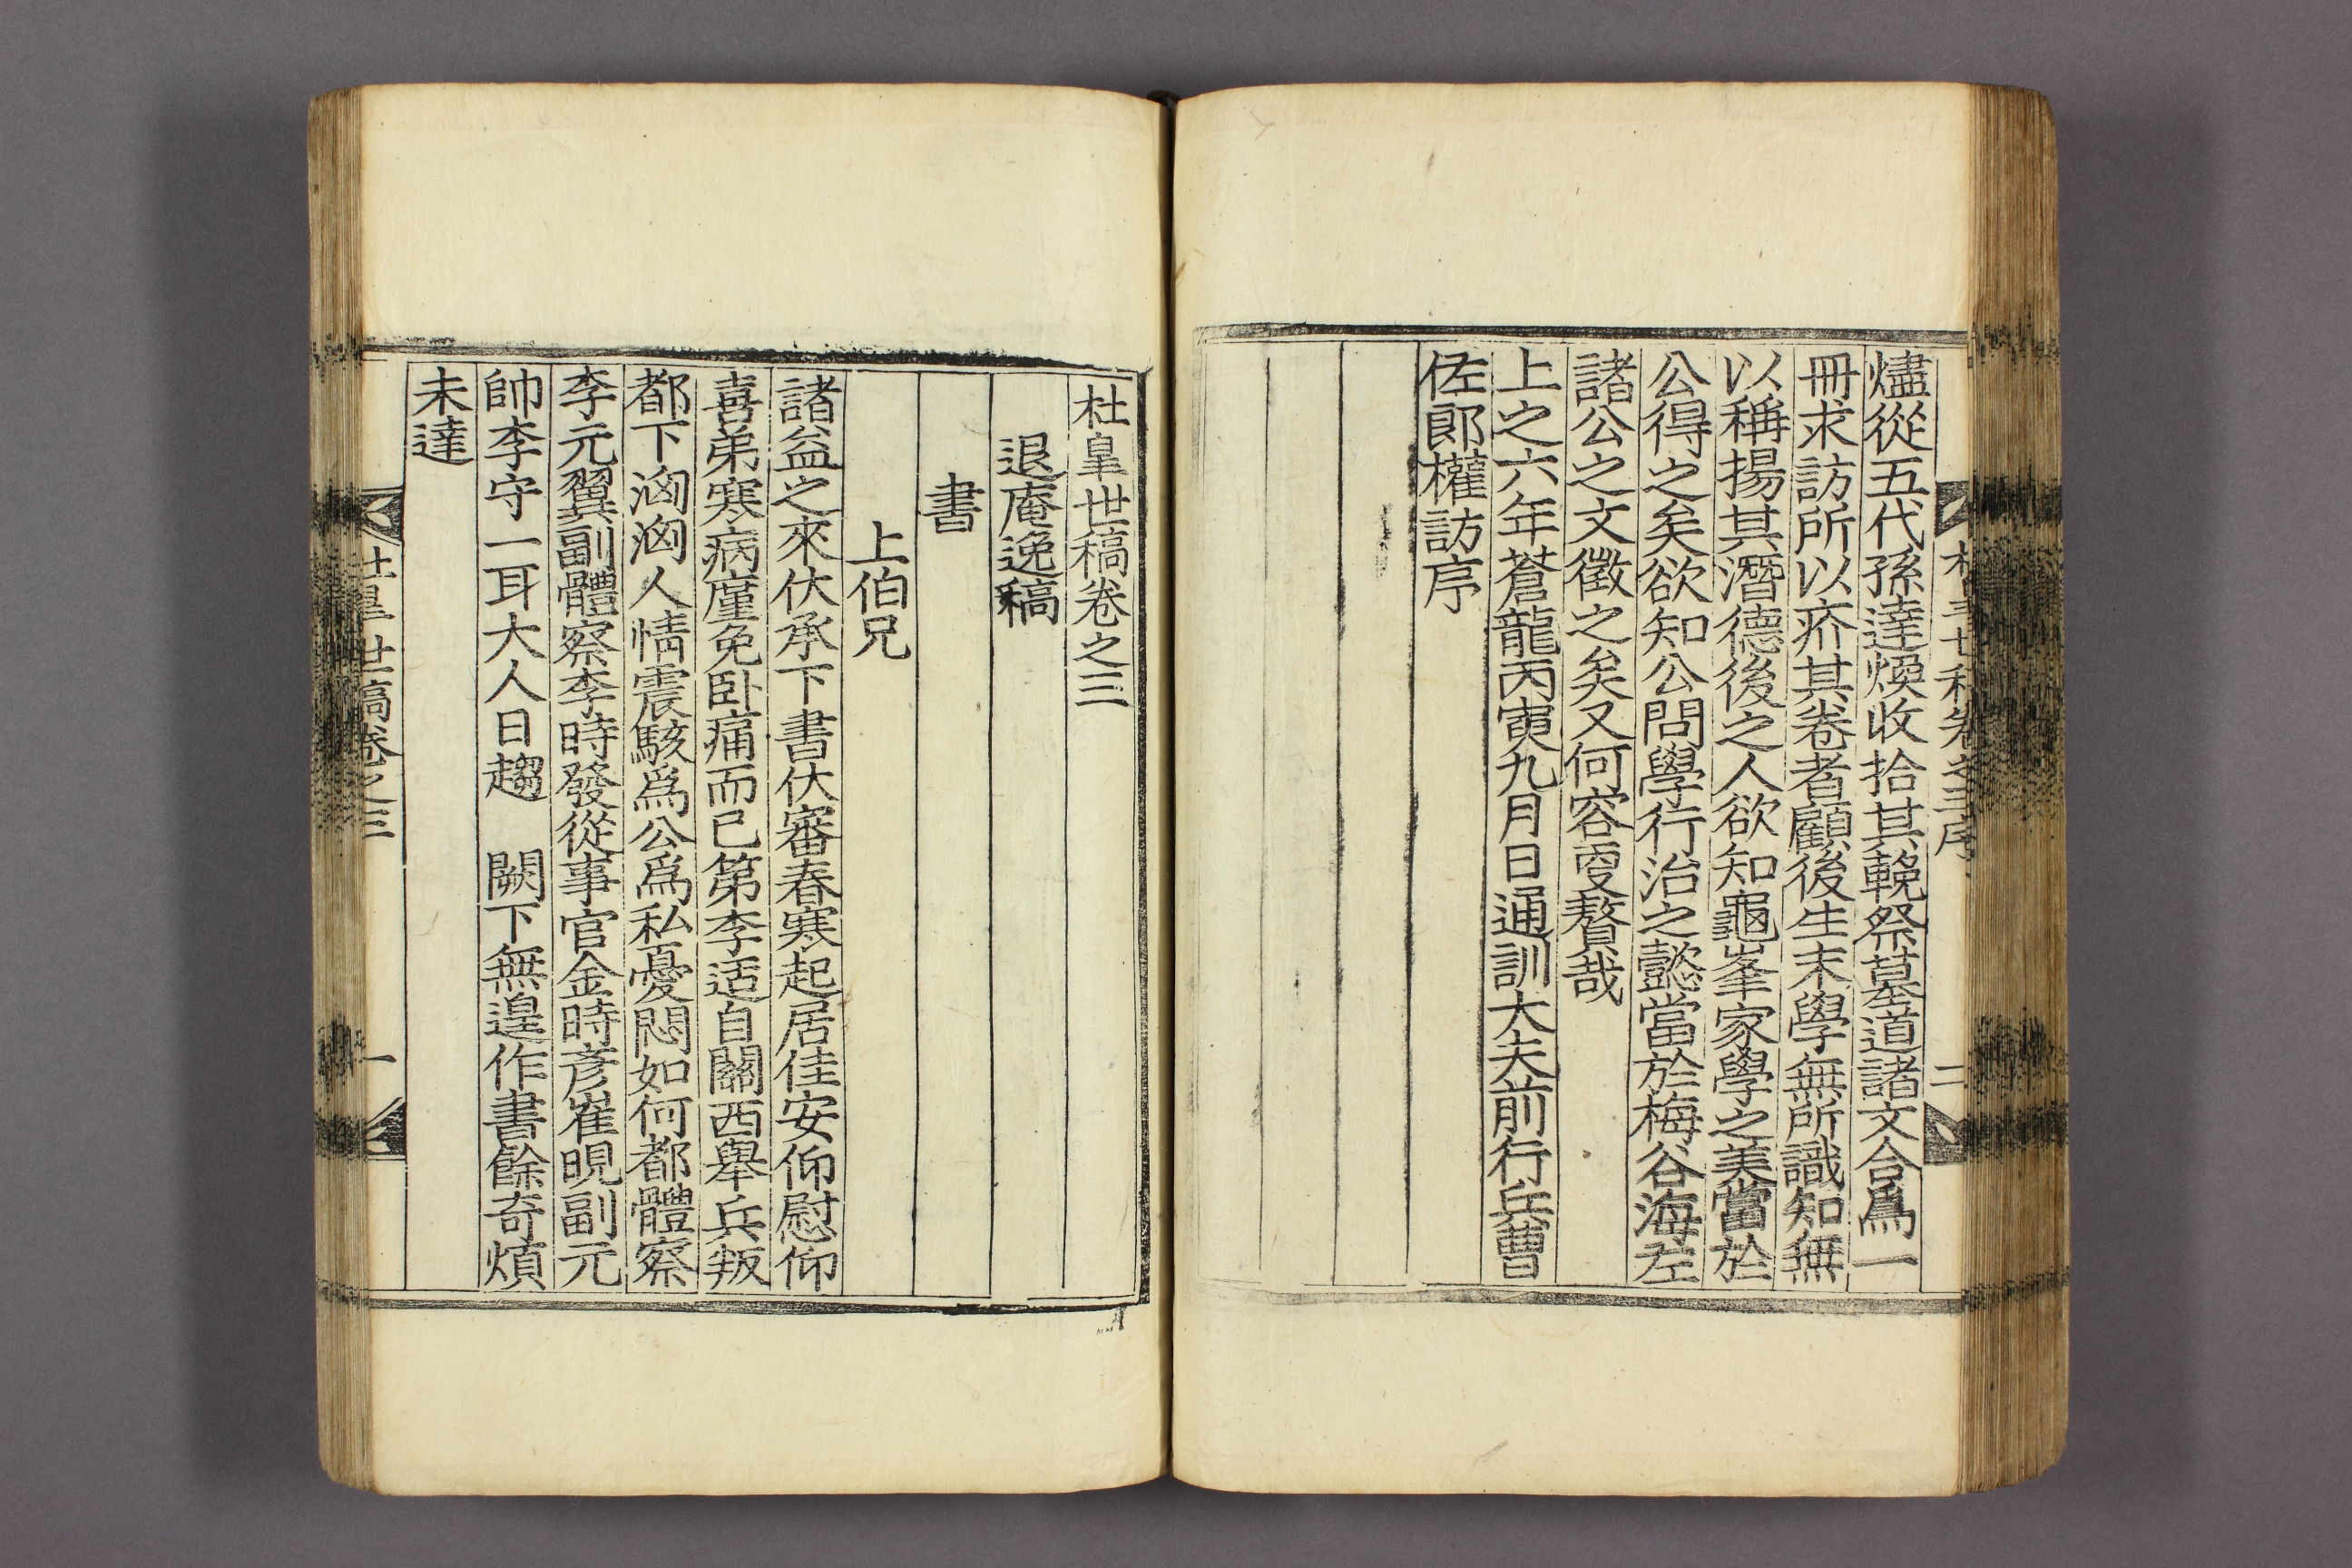 燼從五代孫達煥收拾其輓祭墓道諸文合爲一
冊求訪所以疥其卷者顧後生末學無所識知無
以稱揚其潛德後之人欲知龜峯家學之美當於
公得之矣欲知公問學行治之懿當於梅谷海左
諸公之文徵之矣又何容更贅哉
上之六年蒼龍丙寅九月日通訓大夫前行兵曹
佐郞權訪序
杜皐世稿卷之三
退庵逸稿
書
上伯兄
諸益之來伏承下書伏審春寒起居佳安仰慰仰
喜弟寒病廑免卧痛而已第李适自關西舉兵叛
都下洶洶人情震駭爲公爲私憂悶如何都體察
李元翼副體察李時發從事官金時彦崔晛副元
帥李守一耳大人日趨 闕下無遑作書餘奇煩
未達
杜皐世稿卷之三
一